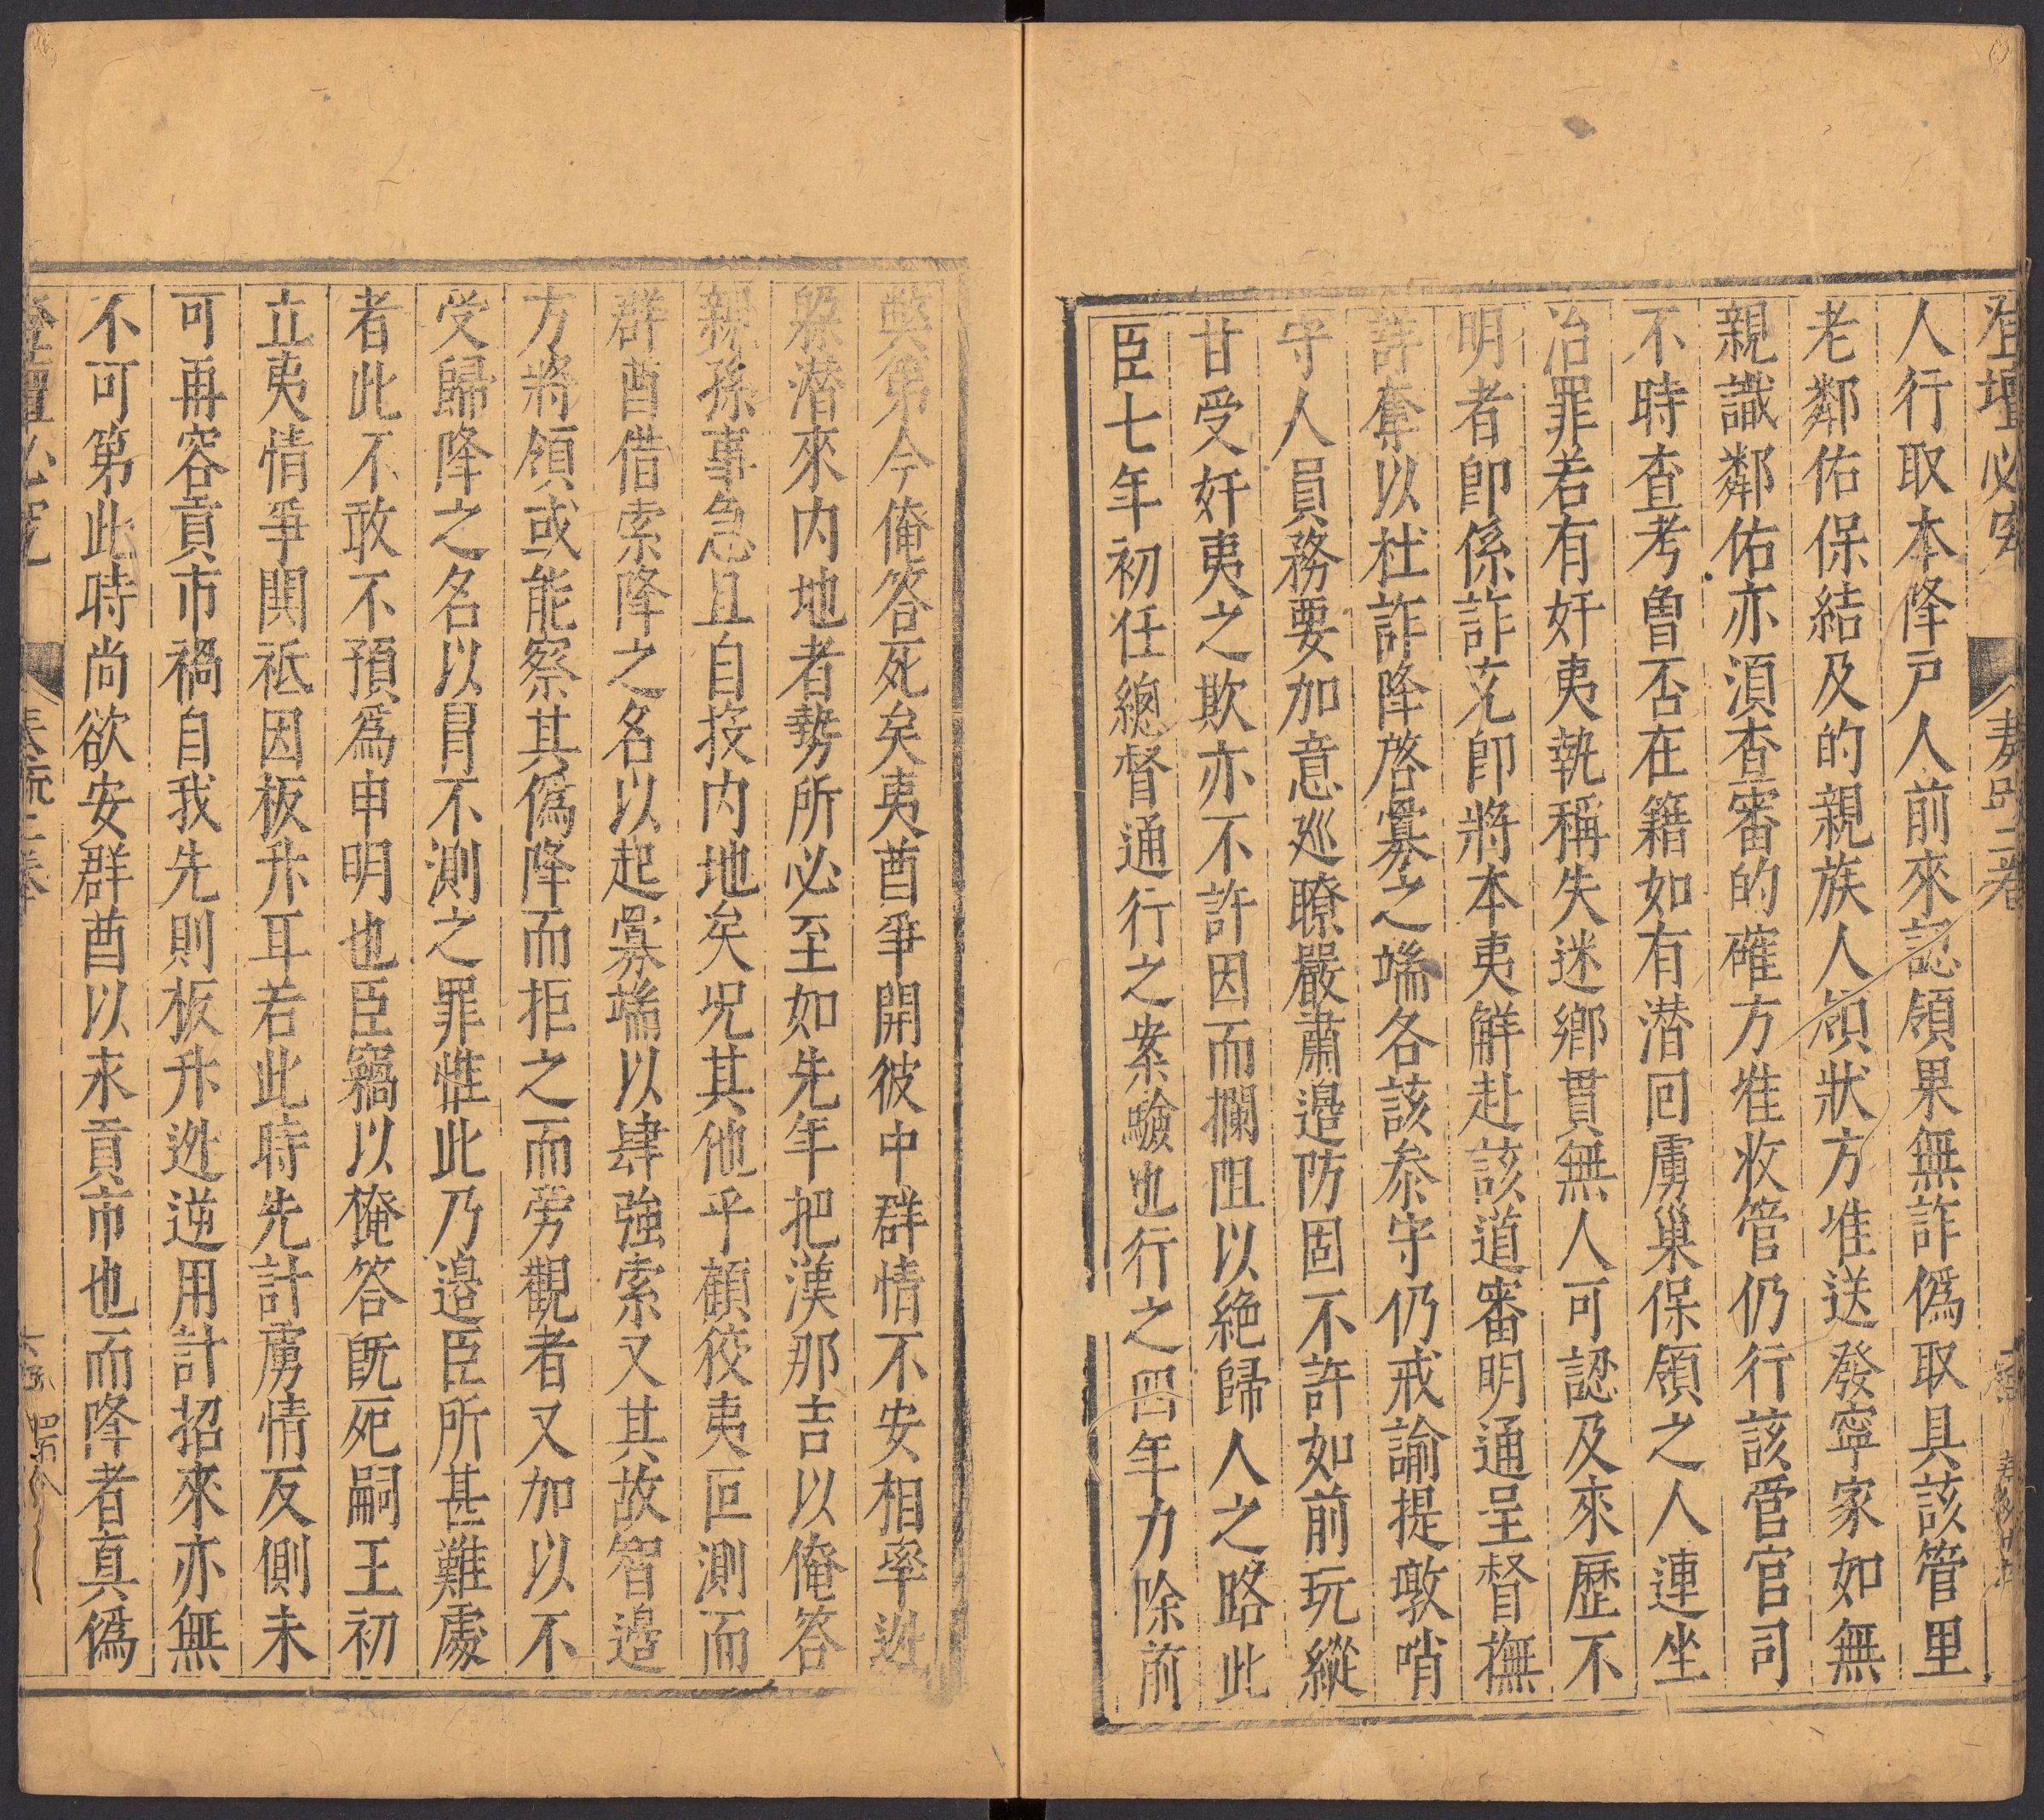 登壇必究
奏疏二卷
人行取本降戶人前來認領果無詐偽取具該管里
老鄰佑保結及的親族人領狀方准送發寧家如無
親識鄰佑亦須查審的確方准收管仍行該管官司
不時查考曾否在籍如有潜回虜巢保領之人連坐
治罪若有奸夷執稱失迷鄉貫無人可認及來歷不
明者即係詐充即將本夷觧赴該道審明通呈督撫
詳奪以杜詐降啓釁之端各該叅守仍戒諭提墩哨
守人員務要加意廵瞭嚴肅邉防固不許如前玩縱
甘受奸夷之欺亦不許因而攔阻以絶歸人之路此
臣七年初任總督通行之案驗也行之四年力除前
獘第今俺答死矣夷酋爭開彼中群情不安相率逃
躱潜來内地者勢所必至如先年把漢那吉以俺答
親孫事急且自投内地矣况其他乎顧狡夷叵測而
群酋借索降之名以起釁端以肆強索又其故智邉
方將領或能察其偽降而拒之而旁觀者又加以不
受歸降之名以冐不測之罪惟此乃邉臣所甚難處
者此不敢不預爲申明也臣竊以俺答既死嗣王初
立夷情爭鬨袛因板升耳若此時先計虜情反側未
可再容貢市禍自我先則板升逃逆用計招來亦無
不可第此時尚欲安群酋以求貢市也而降者真偽
登壇必究
奏疏二卷